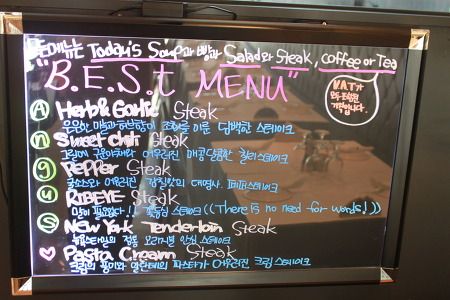 모든메뉴는 Today's Soup과 빵과 Salad와 Steak, coffee or Tea
"B.E.S.t MENU"
V.A.T가 모두 포함된 가격입니다.
A Herb & Garlic Steak
마늘과 허브향이 조화를 이룬 담백한 스테이크
n Sweet chili Steak
그릴에 구운야채와 어우러진 매콤달콤한 칠리스테이크
g Pepper Steak
어우러진 스테이크의 대명사. 페퍼스테이크
u RIBEYE Steak
말이 필요없다!! 꽃등심 스테이크 ((There is no need for words!))
S New York Tenderloin Steak
뉴욕스타일의 정통 오리지널 안심 스테이크
♥ Pasta Cream Steak
크림의 풍미와 파스타가 어우러진 크림 스테이크